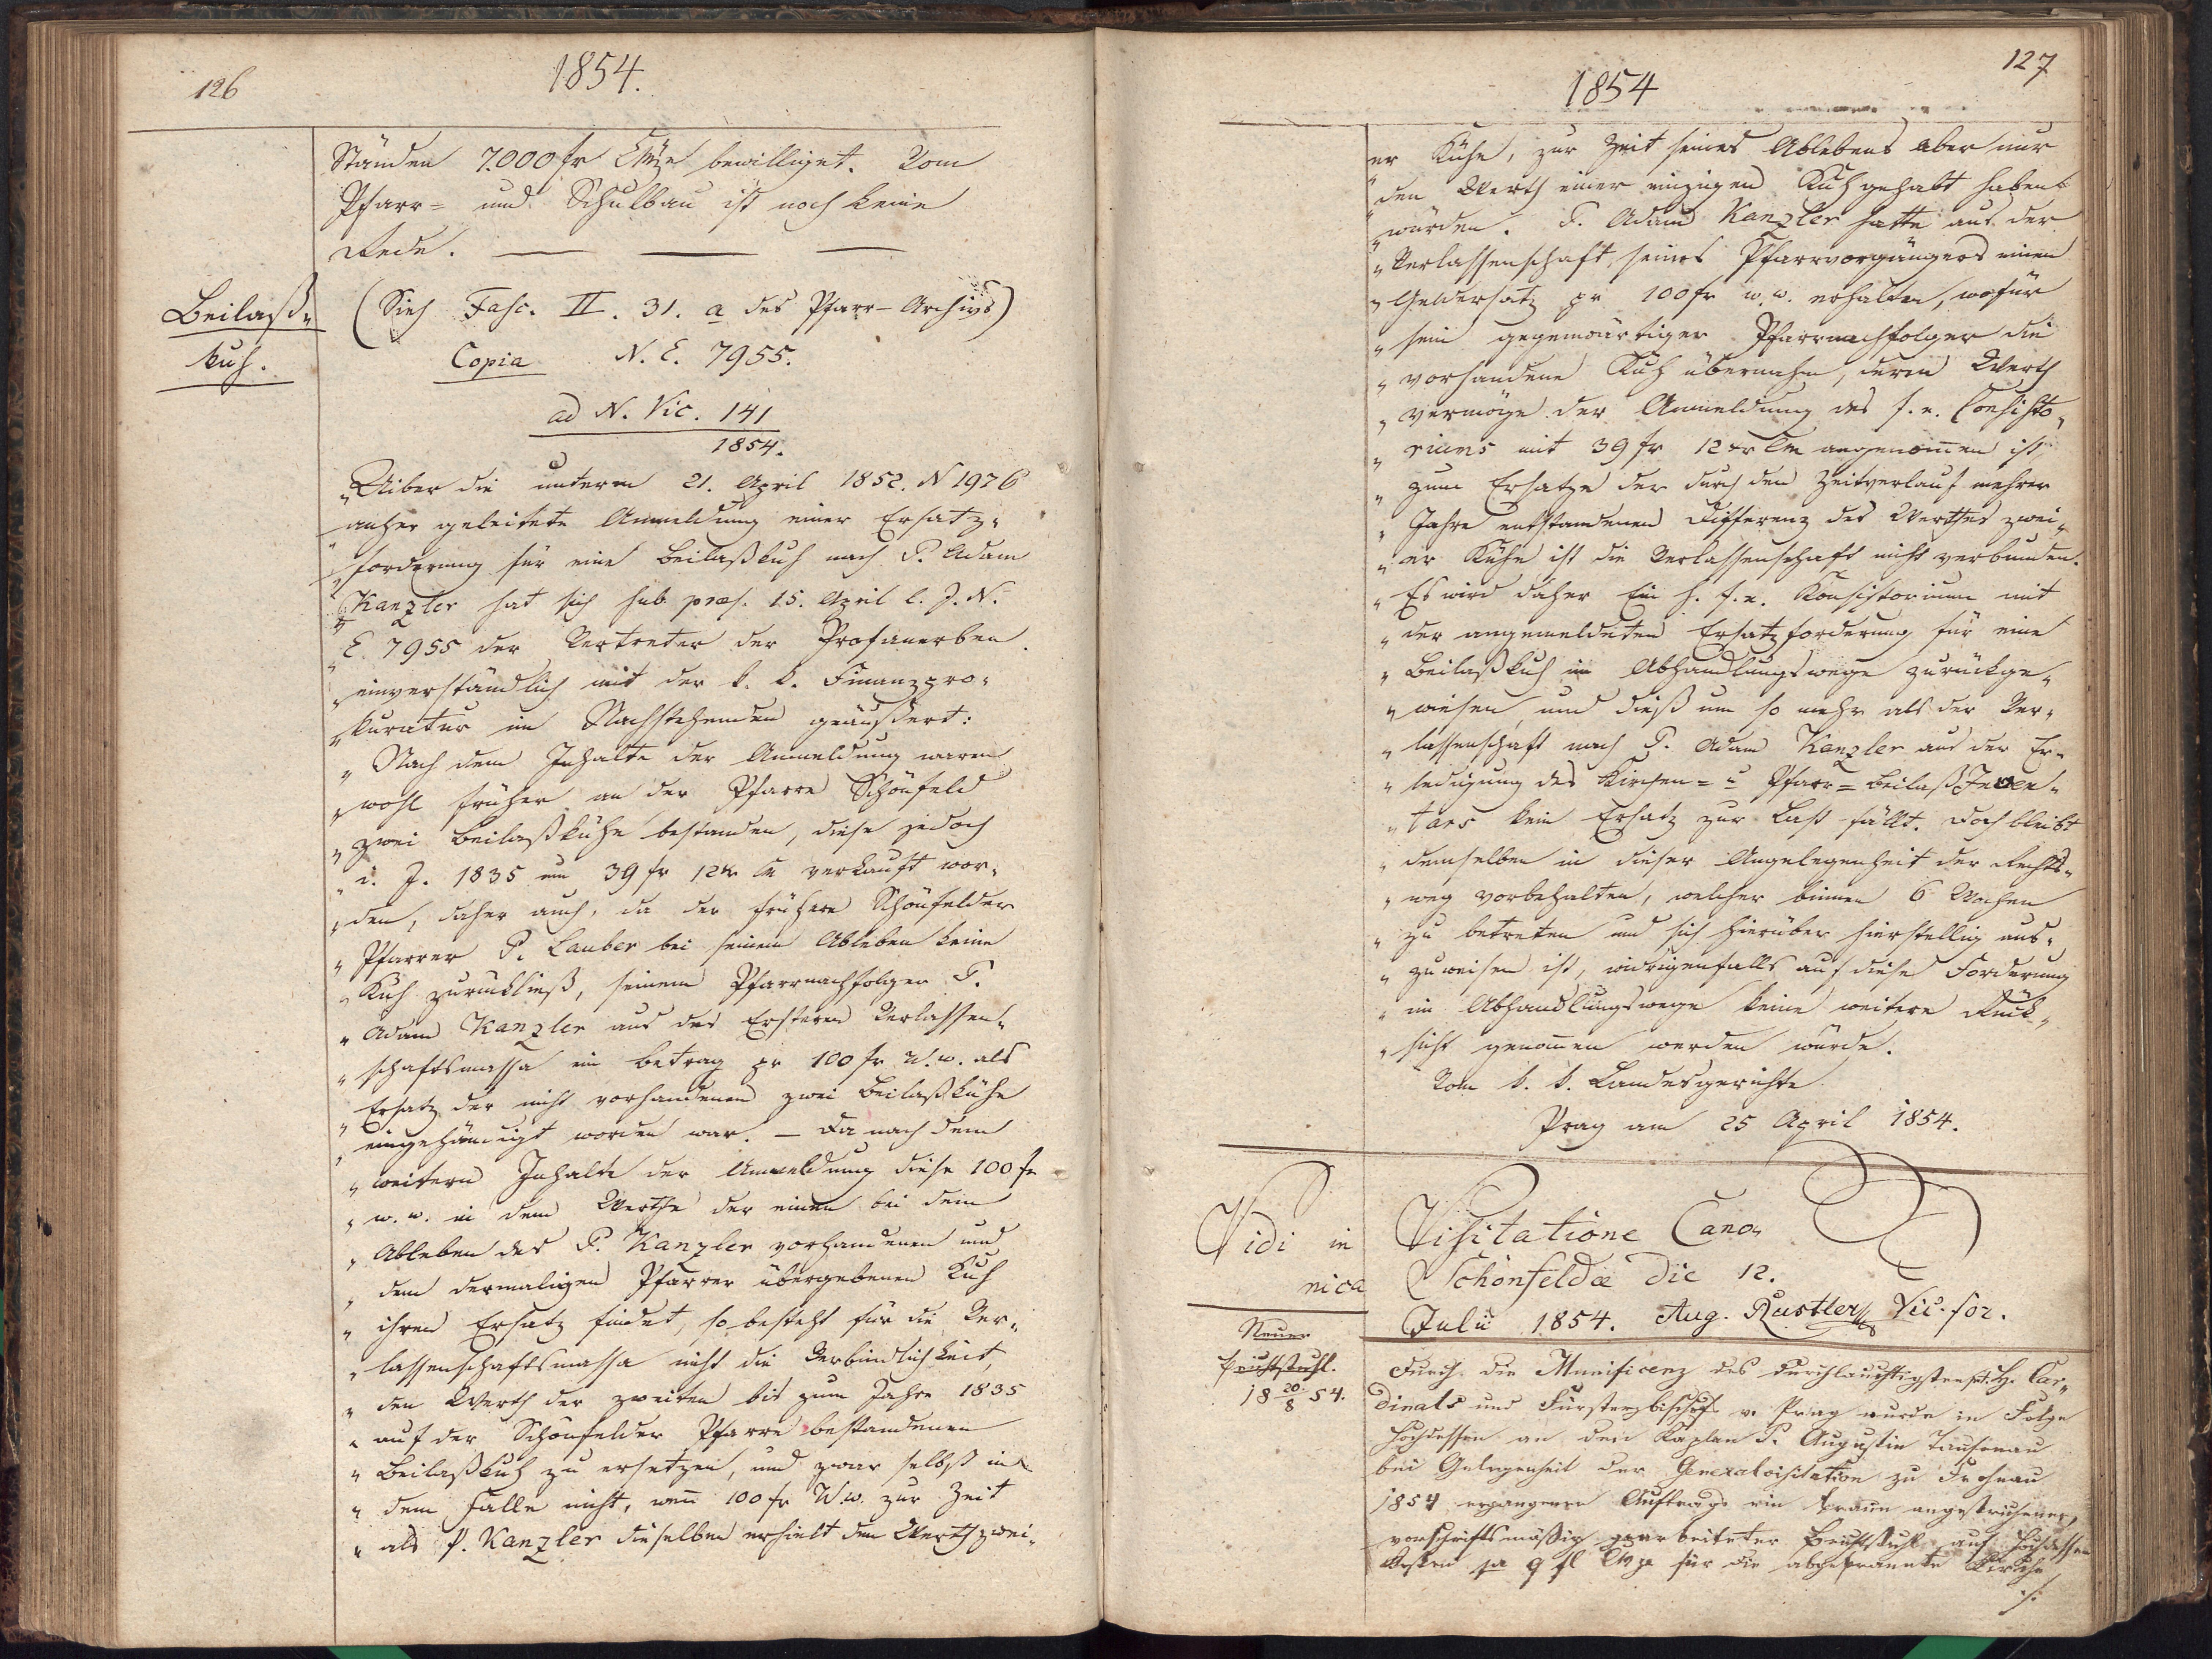 126
1854.
Ständen 7.000 fr CMze bewilliget. Vom
Pfarr= und Schulbau ist noch keine
Rede. — — —
Beilaß=
kuh.
(Sieh Fasc. II. 31. a des Pfarr-Archivs)
Copia N. E. 7955.
ad N. Vic. 141
1854.
"Uiber die unterm 21. April 1852. N 1976
anher geleitete Anmeldung einer Ersatz=
"forderung für eine Beilaßkuh nach P. Adam
"Kanzler hat sich sub præs. 15. April l. J. N.
"E 7955 der Vertreter der Profanerben
"einverständlich mit der k. k. Finanzpro=
"kuratur im Nachstehenden geäußert:
"Nach dem Inhalte der Anmeldung waren
"wohl früher an der Pfarre Schönfeld
"zwei Beilaßkühe bestanden, diese jedoch
"i. J. 1835 um 39 fr 12 xr Cm verkauft wor=
"den, daher auch, da der frühere Schönfelder
"Pfarrer P. Lauber bei seinem Ableben keine
"Kuh zurückließ, seinem Pfarrnachfolger P.
"Adam Kanzler aus des Ersteren Verlassen=
"schaftsmassa ein Betrag pr 100 fr W. w. als
"Ersatz der nicht vorhandenen zwei Beilaßkühe
"eingehändigt worden war. — Da nach dem
"weitern Inhalte der Anmeldung diese 100 fr
"w. w. in dem Werthe der einen bei dem
"Ableben des P. Kanzler vorhandenen und
"dem dermaligen Pfarrer übergebenen Kuh
"ihren Ersatz findet, so besteht für die Ver=
"lassenschaftsmassa nicht die Verbindlichkeit,
"den Werth der zweiten bis zum Jahre 1835
"auf der Schönfelder Pfarre bestandenen
"Beilaßkuh zu ersetzen, und zwar selbst in
"dem Falle nicht, wenn 100 fr W. w. zur Zeit
"als P. Kanzler dieselben erhielt den Werth zwei=
127
1854
er Kühe, zur Zeit seines Ablebens aber nur
"den Werth einer einzigen Kuh gehabt haben
"würden. P. Adam Kanzler hatte aus der
"Verlassenschaft seines Pfarrvorgängers einen
"Geldersatz pr 100 fr w. w. erhalten, wofür
"sein gegenwärtiger Pfarrnachfolger die
"vorhandene Kuh übernahm, deren Werth
"vermöge der Anmeldung des f. e. Consisto=
"riums mit 39 fr 12 xr Cm angenommen ist
"zum Ersatze der durch den Zeitverlauf mehrer
"Jahre entstandenen Differenz des Werthes zwei=
"er Kühe ist die Verlassenschaft nicht verbunden.
"Es wird daher Ein h. f. e. Konsistorium mit
"der angemeldeten Ersatzforderung für eine
"Beilaßkuh im Abhandlungswege zurückge=
"wiesen, und dieß um so mehr als der Ver=
"lassenschaft nach P. Adam Kanzler aus der Er=
"ledigung des Kirchen= u Pfarr=Beilaß Inven=
"tars kein Ersatz zur Last fällt. Doch bleibt
"demselben in dieser Angelegenheit der Rechts=
"weg vorbehalten, welcher binnen 6 Wochen
"zu betreten und sich hierüber hierstellig aus=
"zuweisen ist, widrigenfalls auf diese Forderung
"im Abhandlungswege keine weitere Rück=
"sicht genommen werden würde.
Vom k. k. Landesgerichte
Prag am 25 April 1854.
Vidi in Visitatione Cano=
nica Schönfeldæ die 12.
Julii 1854. Aug. Rustler Vic. for.
Neuer
Beichtstuhl.
18 20./8 54.
Durch die Munificenz des durchlauchtigsten H. H. Car=
dinals und Fürsterzbischofs v. Prag wurde in Folge
Hochdessen an den Kaplan P. Augustin Tausenau
bei Gelegenheit der Generalvisitation zu Frohnau
1854 ergangenen Auftrags ein braun angestrichener,
vorschriftsmäßig gearbeiteter Beichtstuhl auf Hochdessen
Kosten pr 9 fl CMze für die abgebrannte Kirche
./.